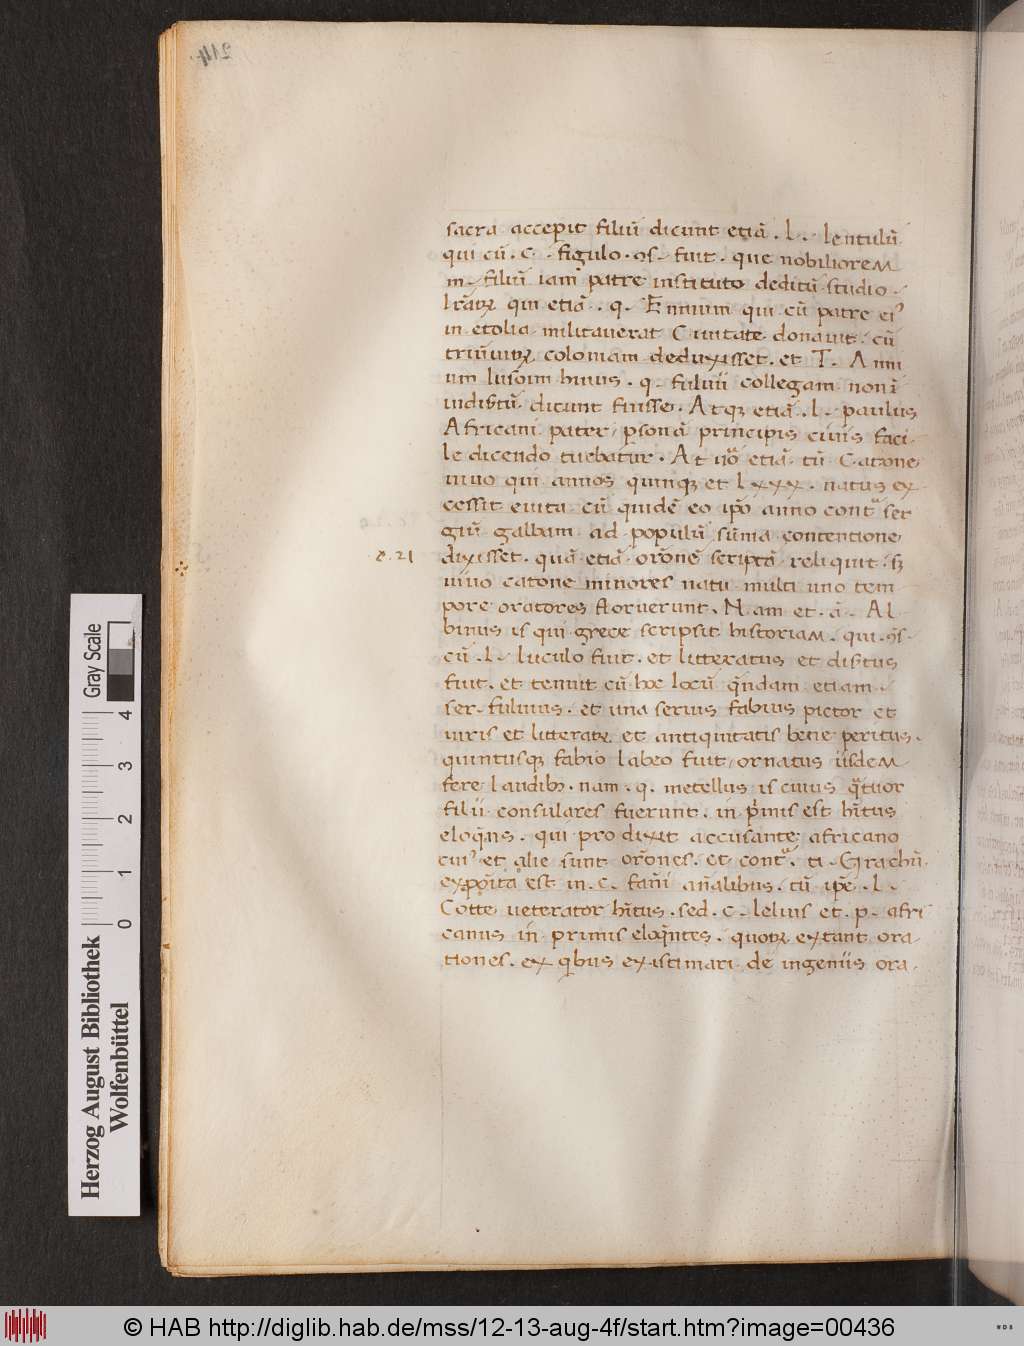 214
sacra accepit filiū dicunt etiā . L . lentulū
qui cū . c . figulo . os . fuit . que nobiliorem
m . filiū iam patre instituto deditū studio .
lr̄aꝝ qui etiā . q . Ennium qui cū patre ei᾽
in etolia militauerat Ciuitate donauit . cū
triū uiꝝ coloniam deduxisset . et T . Anni
um lusoim huius . q . fuluii collegam non ī
indis̄tū dicunt fuisse . Atqꝫ etiā . L . paulus
Africani pater ꝑsonā principis ciuis faci
le dicendo tuebatur . At uo᷒ etiā tū Catone
uiuo qui annos quinqꝫ et lxxx . natus ex
cessit euita cū quidē eo ip̄o anno contᷓ ser
giū galbam ad populū sūma contentione
c . 21
dixisset . quā etiā or̄onē scriptā reliquit . sꝫ
uiuo catone minores natu multi uno tem
pore oratores floruerunt . Nam et . a . Al
binus is qui grece scripsit historiam . qui . os .
cū . L . luculo fuit . et litteratus et disertus
fuit . et tenuit cū hoc locū q̄ndam etiam .
ser . fuluius . et una seruis fabius pictor et
iuris et litteraꝝ et antiquitatis bene peritus .
quintusqꝫ fabio labeo fuit ornatus iisdem
fere laudibꝫ . nam . q . metellus is cuius qᷓtuor
filii consulares fuerunt . in pͥmis est hītus
eloq̄ns . qui pro dixit accusante africano
cui᾽ et alie sunt or̄ones . et contᷓ . ti . Grachū .
exposita est in . c . fañi añalibus . tū ip̄e . L .
Cotte ueterator hītus . sed . c . lelius et . p . afri
canus in primis eloq̄ntes . quoꝝ extant ora
tiones . ex qͥbus existimari de ingeniis ora .
Herzog August Bibliothek
Wolfenbüttel
0 1 2 3 4
Gray Scale
© HAB http://diglib.hab.de/mss/12-13-aug-4f/start.htm?image=00436
WDB